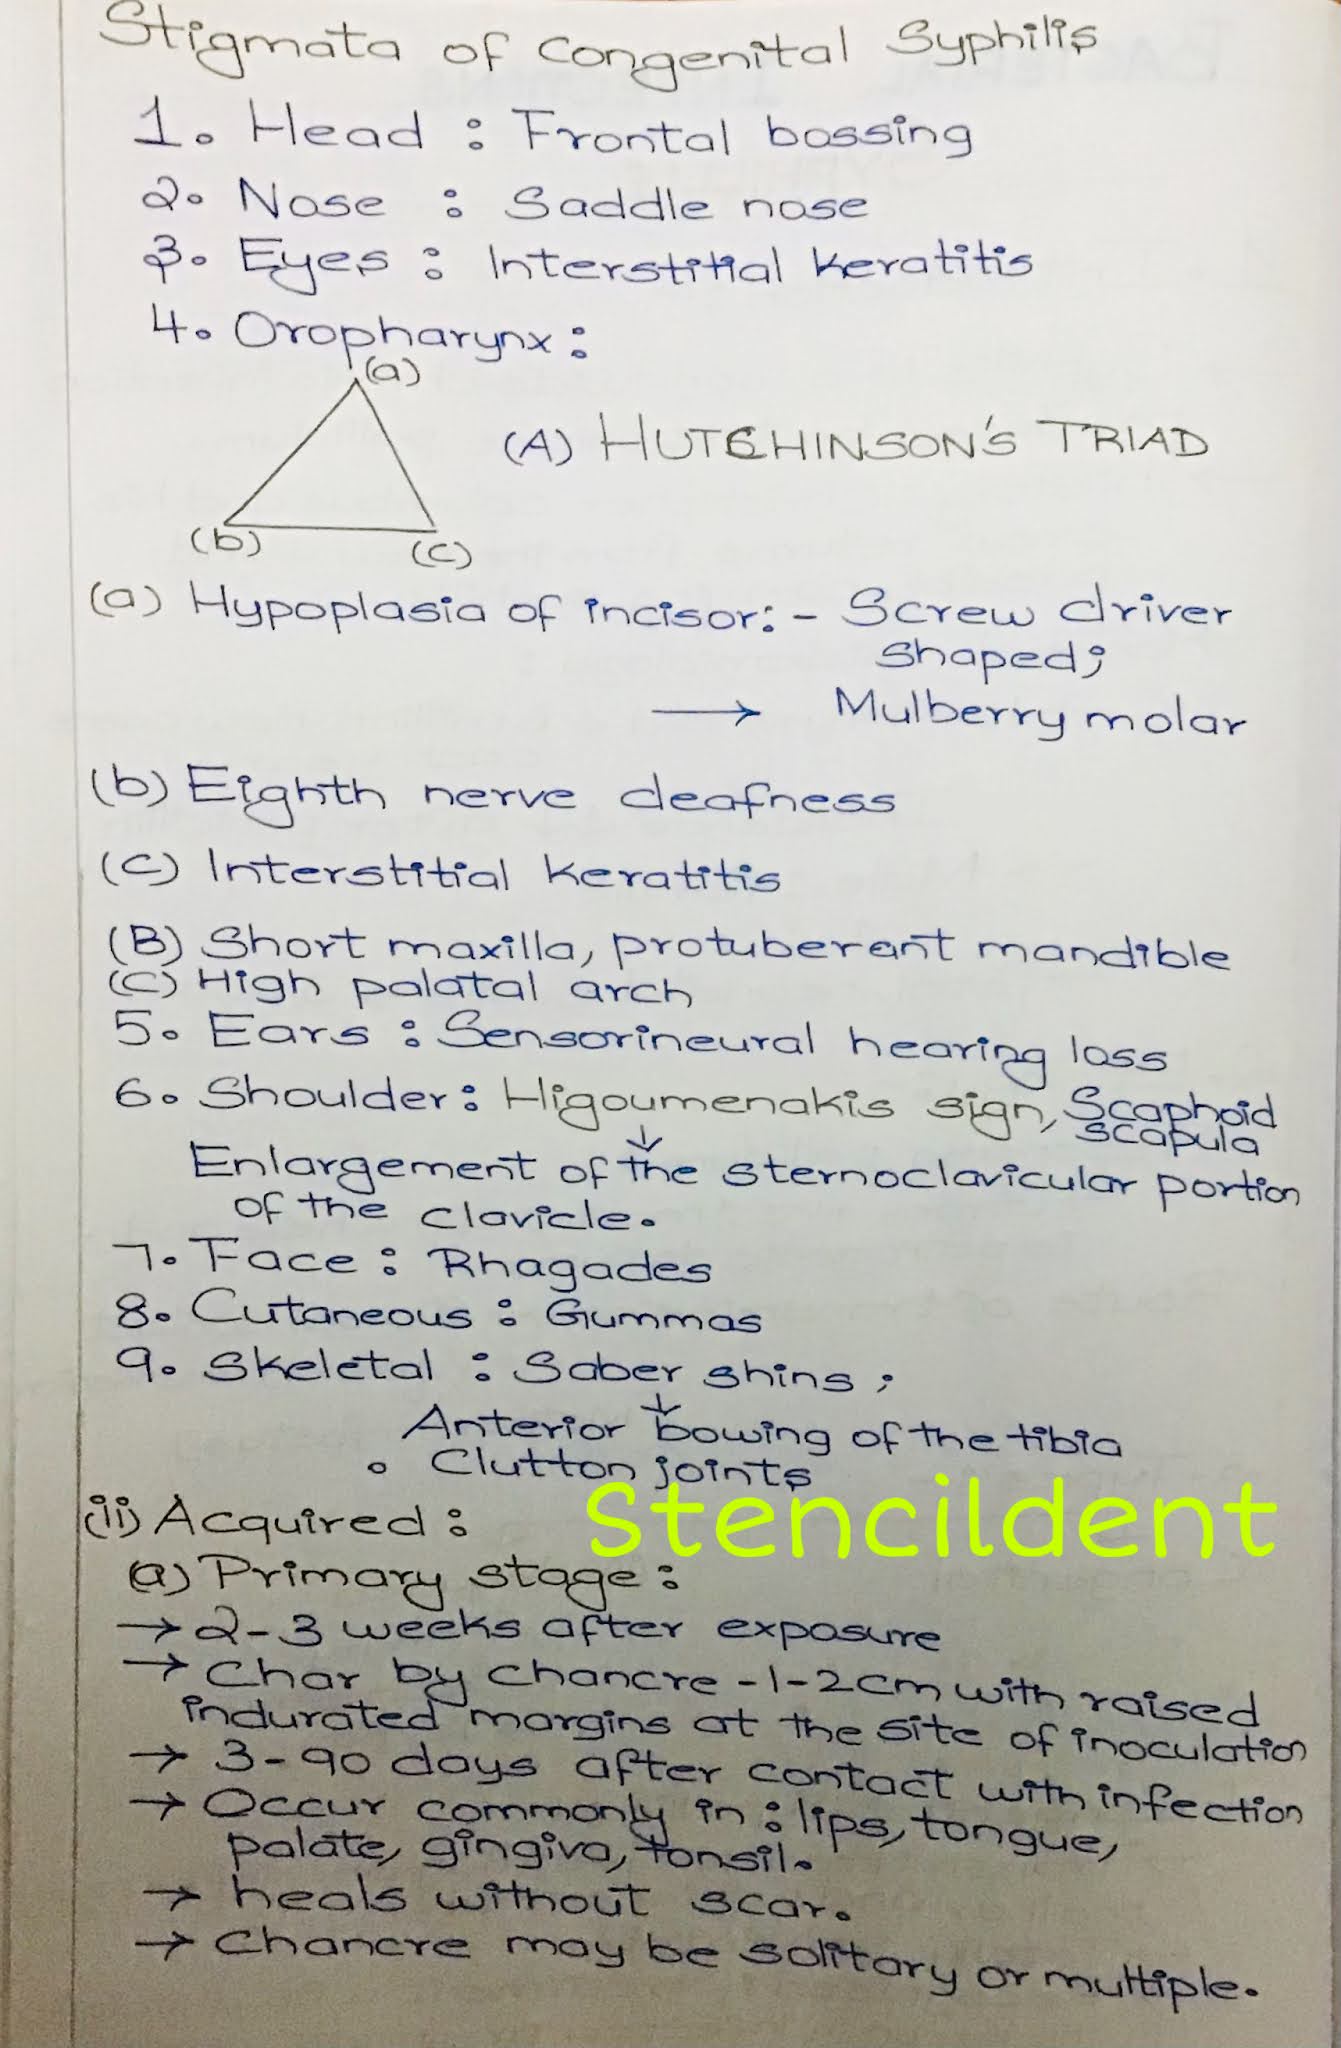 Stigmata of Congenital Syphilis
1. Head : Frontal bossing
2. Nose : Saddle nose
3. Eyes : Interstitial keratitis
4. Oropharynx :
(a)
(A) HUTCHINSON'S TRIAD
(b) (c)
(a) Hypoplasia of incisor: - Screw driver
shaped;
→ Mulberry molar
(b) Eighth nerve deafness
(c) Interstitial keratitis
(B) Short maxilla, protuberant mandible
(C) High palatal arch
5. Ears : Sensorineural hearing loss
6. Shoulder : Higoumenakis sign, Scaphoid
scapula
↓
Enlargement of the sternoclavicular portion
of the clavicle.
7. Face : Rhagades
8. Cutaneous : Gummas
9. Skeletal : Saber shins ;
↓
Anterior bowing of the tibia
• Clutton joints
Stencildent
(ii) Acquired :
(a) Primary stage :
→ 2-3 weeks after exposure
→ Char by chancre - 1-2 cm with raised
indurated margins at the site of inoculation
→ 3-90 days after contact with infection
→ Occur commonly in : lips, tongue,
palate, gingiva, tonsil.
→ heals without scar.
→ Chancre may be solitary or multiple.